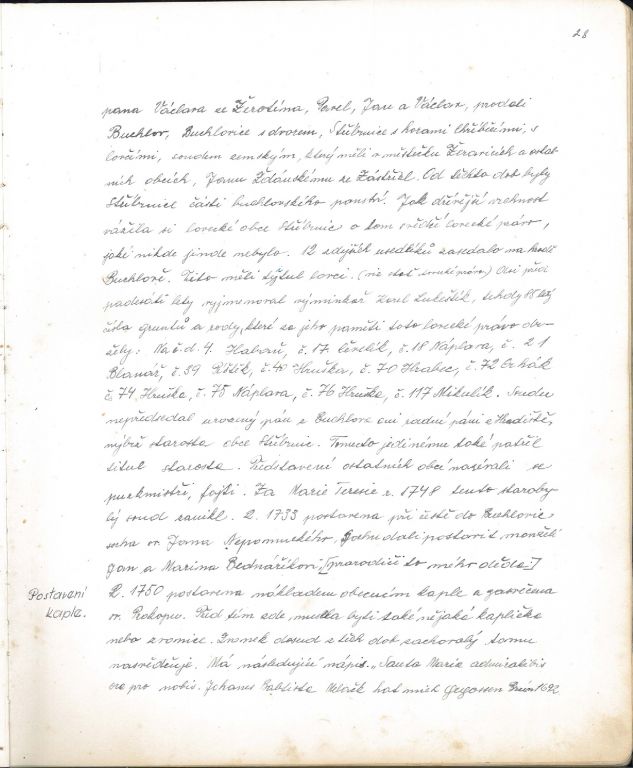 28
pana Václava ze Žerotína, Pavel, Jan a Václav, prodali
Buchlov, Buchlovice s dvorem, Stříbrnice s horami Chřibčími, s
lovčími, soudem zemským, který měli v městečku Žeravicích a ostat-
ních obcích, Janu Ždánskému ze Zástřizl. Od těchto dob byly
Stříbrnice částí buchlovského panství. Jak dřívější vrchnost
vážila si lovecké obce Stříbrnic o tom svědčí lovecké právo,
jaké nikde jinde nebylo. 12 zdejších usedlíků zasedalo na hradě
Buchlově. Tito měli týtul lovci. (viz stať lovecké právo) Asi před
padesáti lety vyjmenoval výminkář Karel Lukeštík, tehdy letý
čísla gruntů a rody, které za jeho paměti toto lovecké právo dr-
žely: Na č.d. 4. Habrů, č. 17. č. 18 Náplava, č. 21
Blanář, č. 39 č. 40 Hruška, č. 70 Hrabec, č. 72
č. 74 Hruška, č. 75 Náplava, č. 76 Hruška, č. 117 Mikulík. Soudu
nepředsedal urozený pán z Buchlova ani radní páni z Hradiště,
nýbrž starosta obce Stříbrnic. Tomuto jedinému také patřil
titul starosta. Představení ostatních obcí nazývali se
purkmistři, fojti. Za Marie Terezie r. 1748 tento staroby-
lý soud zanikl. R. 1733 postavena při cestě do Buchlovic
socha sv. Jana Nepomuckého. Sochu dali postavit manželé
Jan a Marina Bednaříkovi. [: prarodiče to mého děda :]
Postavení
kaple.
R. 1750 postavena nákladem obecním kaple a zasvěcena
sv. Prokopu. Před tím zde musela býti také nějaká kaplička
nebo zvonice. Zvonek dosud z těch dob zachovalý tomu
nasvědčuje. Má následující nápis: „Santa Maria admirabilis
ora pro nobis. Johanes Babtista Melack hat mich gegossen Brün 1692